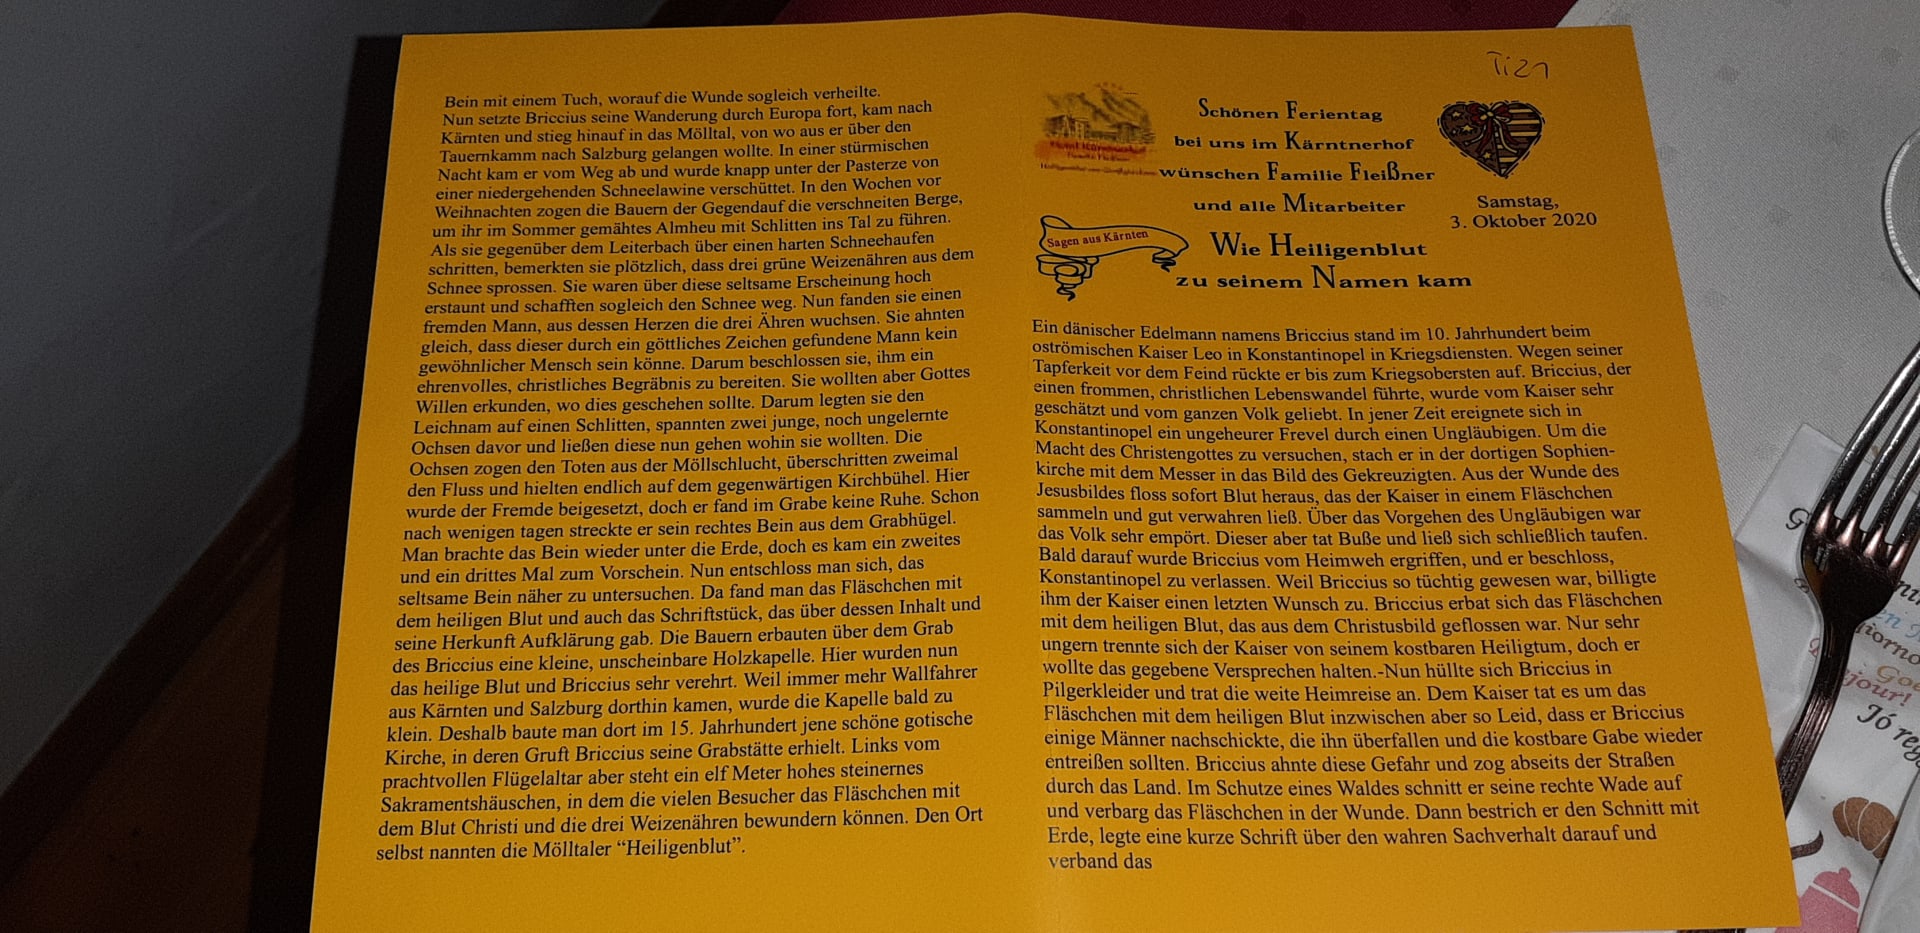 Ti21
Schönen Ferientag
bei uns im Kärntnerhof
wünschen Familie Fleißner
und alle Mitarbeiter
Samstag,
3. Oktober 2020
Sagen aus Kärnten
Wie Heiligenblut
zu seinem Namen kam
Ein dänischer Edelmann namens Briccius stand im 10. Jahrhundert beim
oströmischen Kaiser Leo in Konstantinopel in Kriegsdiensten. Wegen seiner
Tapferkeit vor dem Feind rückte er bis zum Kriegsobersten auf. Briccius, der
einen frommen, christlichen Lebenswandel führte, wurde vom Kaiser sehr
geschätzt und vom ganzen Volk geliebt. In jener Zeit ereignete sich in
Konstantinopel ein ungeheurer Frevel durch einen Ungläubigen. Um die
Macht des Christengottes zu versuchen, stach er in der dortigen Sophien-
kirche mit dem Messer in das Bild des Gekreuzigten. Aus der Wunde des
Jesusbildes floss sofort Blut heraus, das der Kaiser in einem Fläschchen
sammeln und gut verwahren ließ. Über das Vorgehen des Ungläubigen war
das Volk sehr empört. Dieser aber tat Buße und ließ sich schließlich taufen.
Bald darauf wurde Briccius vom Heimweh ergriffen, und er beschloss,
Konstantinopel zu verlassen. Weil Briccius so tüchtig gewesen war, billigte
ihm der Kaiser einen letzten Wunsch zu. Briccius erbat sich das Fläschchen
mit dem heiligen Blut, das aus dem Christusbild geflossen war. Nur sehr
ungern trennte sich der Kaiser von seinem kostbaren Heiligtum, doch er
wollte das gegebene Versprechen halten.-Nun hüllte sich Briccius in
Pilgerkleider und trat die weite Heimreise an. Dem Kaiser tat es um das
Fläschchen mit dem heiligen Blut inzwischen aber so Leid, dass er Briccius
einige Männer nachschickte, die ihn überfallen und die kostbare Gabe wieder
entreißen sollten. Briccius ahnte diese Gefahr und zog abseits der Straßen
durch das Land. Im Schutze eines Waldes schnitt er seine rechte Wade auf
und verbarg das Fläschchen in der Wunde. Dann bestrich er den Schnitt mit
Erde, legte eine kurze Schrift über den wahren Sachverhalt darauf und
verband das
Bein mit einem Tuch, worauf die Wunde sogleich verheilte.
Nun setzte Briccius seine Wanderung durch Europa fort, kam nach
Kärnten und stieg hinauf in das Mölltal, von wo aus er über den
Tauernkamm nach Salzburg gelangen wollte. In einer stürmischen
Nacht kam er vom Weg ab und wurde knapp unter der Pasterze von
einer niedergehenden Schneelawine verschüttet. In den Wochen vor
Weihnachten zogen die Bauern der Gegendauf die verschneiten Berge,
um ihr im Sommer gemähtes Almheu mit Schlitten ins Tal zu führen.
Als sie gegenüber dem Leiterbach über einen harten Schneehaufen
schritten, bemerkten sie plötzlich, dass drei grüne Weizenähren aus dem
Schnee sprossen. Sie waren über diese seltsame Erscheinung hoch
erstaunt und schafften sogleich den Schnee weg. Nun fanden sie einen
fremden Mann, aus dessen Herzen die drei Ähren wuchsen. Sie ahnten
gleich, dass dieser durch ein göttliches Zeichen gefundene Mann kein
gewöhnlicher Mensch sein könne. Darum beschlossen sie, ihm ein
ehrenvolles, christliches Begräbnis zu bereiten. Sie wollten aber Gottes
Willen erkunden, wo dies geschehen sollte. Darum legten sie den
Leichnam auf einen Schlitten, spannten zwei junge, noch ungelernte
Ochsen davor und ließen diese nun gehen wohin sie wollten. Die
Ochsen zogen den Toten aus der Möllschlucht, überschritten zweimal
den Fluss und hielten endlich auf dem gegenwärtigen Kirchbühel. Hier
wurde der Fremde beigesetzt, doch er fand im Grabe keine Ruhe. Schon
nach wenigen tagen streckte er sein rechtes Bein aus dem Grabhügel.
Man brachte das Bein wieder unter die Erde, doch es kam ein zweites
und ein drittes Mal zum Vorschein. Nun entschloss man sich, das
seltsame Bein näher zu untersuchen. Da fand man das Fläschchen mit
dem heiligen Blut und auch das Schriftstück, das über dessen Inhalt und
seine Herkunft Aufklärung gab. Die Bauern erbauten über dem Grab
des Briccius eine kleine, unscheinbare Holzkapelle. Hier wurden nun
das heilige Blut und Briccius sehr verehrt. Weil immer mehr Wallfahrer
aus Kärnten und Salzburg dorthin kamen, wurde die Kapelle bald zu
klein. Deshalb baute man dort im 15. Jahrhundert jene schöne gotische
Kirche, in deren Gruft Briccius seine Grabstätte erhielt. Links vom
prachtvollen Flügelaltar aber steht ein elf Meter hohes steinernes
Sakramentshäuschen, in dem die vielen Besucher das Fläschchen mit
dem Blut Christi und die drei Weizenähren bewundern können. Den Ort
selbst nannten die Mölltaler “Heiligenblut”.
Jó